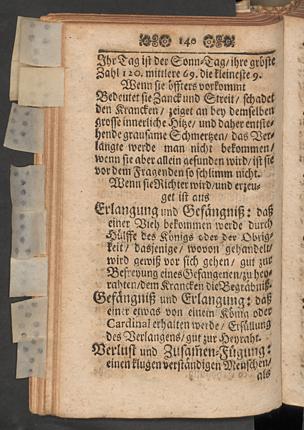 140
Ihr Tag ist der Sonn-Tag/ ihre gröste
Zahl 120. mittlere 69. die kleineste 9.
Wenn sie öffters vorkommt
Bedeutet sie Zanck und Streit/ schadet
den Krancken/ zeiget an bey demselben
grosse innerliche Hitze/ und daher entste-
hende grausame Schmertzen/ das Ver-
langte werde man nicht bekommen/
wenn sie aber allein gefunden wird/ ist sie
vor dem Fragenden so schlimm nicht.
Wenn sie Richter wird/ und erzeu-
get ist aus
Erlangung und Gefängniß: daß
einer Vieh bekommen werde durch
Hülffe des Königs oder der Obrig-
keit/ dasjenige/ wovon gehandelt/
wird gewiß vor sich gehen/ gut zur
Befreyung eines Gefangenen/ zu hey-
rahten/ dem Krancken die Begräbniß.
Gefängniß und Erlangung: daß
einer etwas von einem König oder
Cardinal erhalten werde/ Erfüllung
des Verlangens/ gut zur Heyraht.
Verlust und Zusam̄en-Fügung:
einen klugen verständigen Menschen/
als